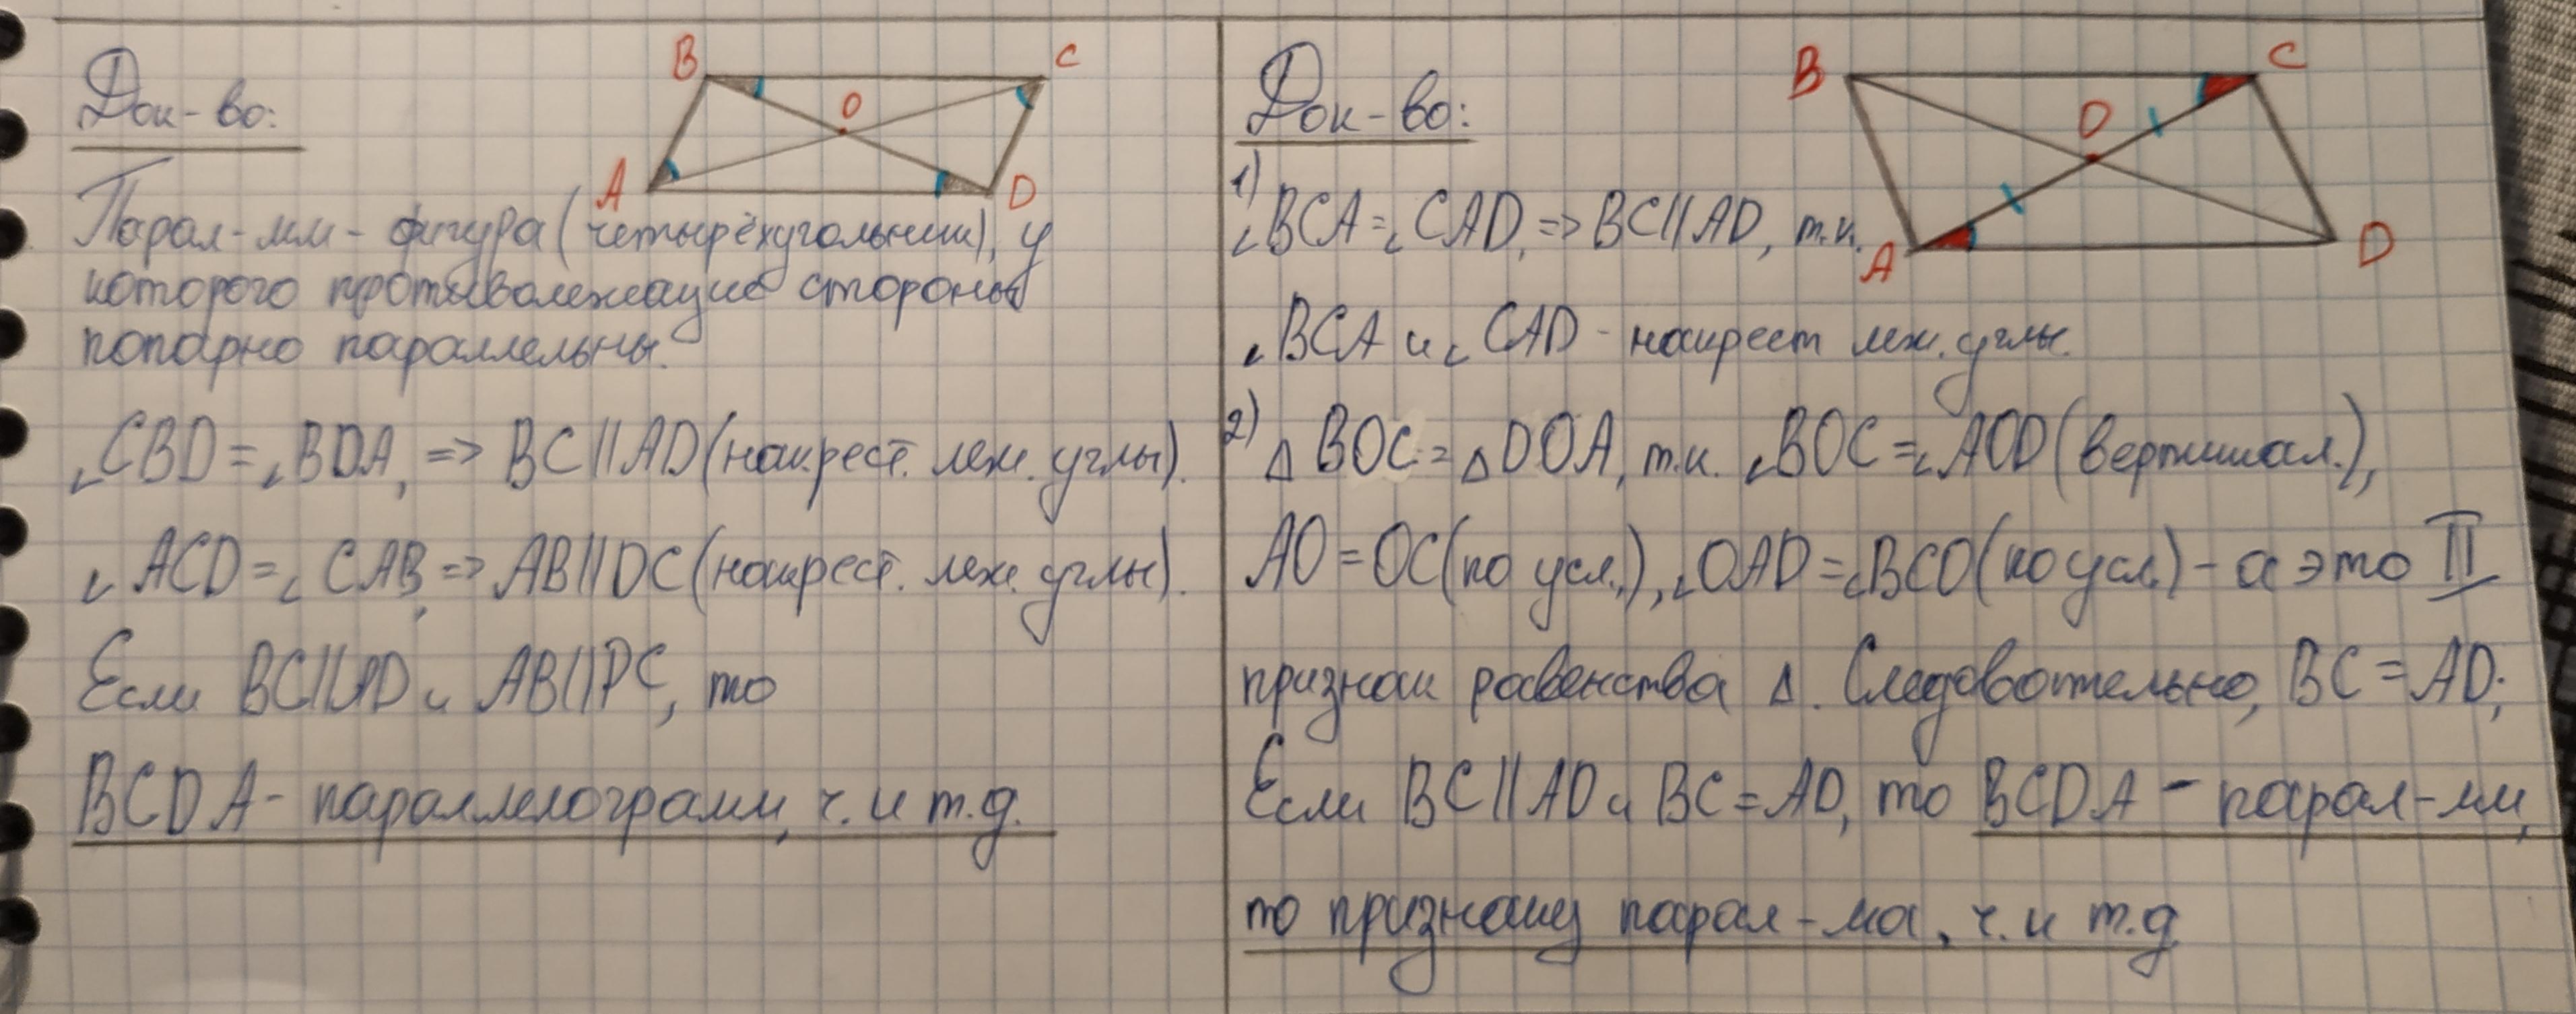 Док-во:
B C
O
A D
Парал-мм - фигура (четырёхугольник), у
которого противолежащие стороны
попарно параллельны.
∠CBD = ∠BDA, => BC||AD (накрест. леж. углы).
∠ACD = ∠CAB, => AB||DC (накрест. леж. углы).
Если BC||AD и AB||DC, то
BCDA - параллелограмм, ч. и т.д.
Док-во:
B C
O
A D
1)
∠BCA = ∠CAD, => BC||AD, т.к.
∠BCA и ∠CAD - накрест леж. углы.
2) Δ BOC = Δ DOA, т.к. ∠BOC = ∠AOD (вертикал.),
AO = OC (по усл.), ∠OAD = ∠BCO (по усл.) - а это II
признак равенства Δ. Следовательно, BC = AD;
Если BC||AD и BC = AD, то BCDA - парал-мм,
по признаку парал-ма, ч. и т.д